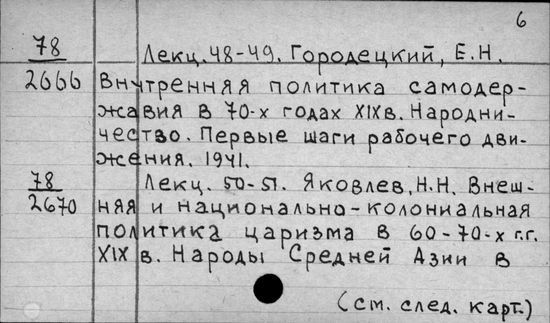 6
78
2666
Лекц. 48-49. Городецкий, Е.Н.
Внутренняя политика самодер-
жавия в 70-х годах XIX в. Народни-
чество. Первые шаги рабочего дви-
жения. 1941.
78
2670
Лекц. 50-51. Яковлев, Н.Н. Внеш-
няя и национально-колониальная
политика царизма в 60-70-х г.г.
XIX в. Народы Средней Азии в
(см. след. карт.)